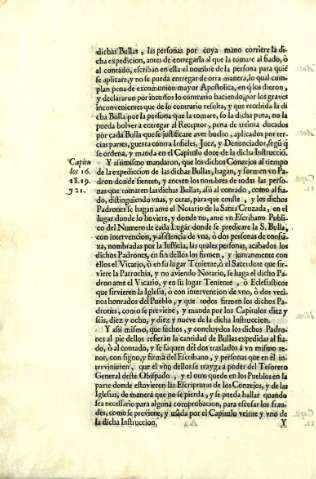 dichas Bullas, las personas por cuya mano corriere la di-
cha expedicion, antes de entregarla al que la tomare al fiado, ò
al contado, escriban en ella el nombre de la persona para quiè
se aplicare, y no se pueda entregar de otra manera, lo qual cum-
plan pena de excomunion mayor Apostolica, en q̃ los dieron,
y declararon por incursos lo contrario haciendo, por los graves
inconvenientes que de lo contrario resulta, y que recebida la di-
cha Bulla por la persona que la tomare, so la dicha pena, no la
pueda bolver à entregar al Receptor, pena de treinta ducados
por cada Bulla que se justificare aver buelto, aplicados por ter-
cias partes, guerra contra Infieles, Juez, y Denunciador, segũ q̃
se ordena, y manda en el Capitulo doce de la dicha Instrucciõ.
Capitu
los 16.
18. 19.
y 21.
Y assimismo mandaron, que los dichos Concejos al tiempo
de la expedicion de las dichas Bullas, hagan, y formen vn Pa-
dron donde sienten, y anoten los nombres de todas las perso-
nas que tomaren las dichas Bullas, assi al contado, como al fia-
do, distinguiendo vnas, y otras, para que conste, y los dichos
Padrones se hagan ante el Notario de la Santa Cruzada, en el
lugar donde lo huviere, y donde no, ante vn Escribano Publi-
co del Numero de cada Lugar donde se predicare la S. Bulla,
con intervencion, y assistencia de vno, ò dos personas de confia-
za, nombradas por la Justicia, las quales personas, acabados los
dichos Padrones, en fin dellos los firmen, y juntamente con
ellos el Vicario, ò en su lugar Teniente, ò el Sacerdote que sir-
viere la Parrochia, y no aviendo Notario, se haga el dicho Pa-
dron ante el Vicario, y en su lugar Teniente, ò Eclesiasticos
que sirvieren la Iglesia, ò con intervencion de vno, ò dos vezi-
nos honrados del Pueblo, y que todos firmen los dichos Pa-
drones, como se previene, y manda por los Capitulos diez y
seis, diez y ocho, y diez y nueve de la dicha Instruccion.
Y assi mismo, que fechos, y concluydos los dichos Padro-
nes al pie dellos refieran la cantidad de Bullas expedidas al fia-
do, ò al contado, y se saquen del dos traslados à vn mismo te-
nor, con signo, y firma del Escribano, y personas que en èl in-
tervinieren, que el vno dellos se trayga à poder del Tesorero
General deste Obispado, y el otro quede en los Pueblos en la
parte donde estuvieren las Escripturas de los Concejos, y de las
Iglesias, de manera que no se pierda, y se pueda hallar quando
sea necessario para alguna comprobacion, para escusar los frau-
des, como se previene, y manda por el Capitulo veinte y vno de
la dicha Instruccion. Y